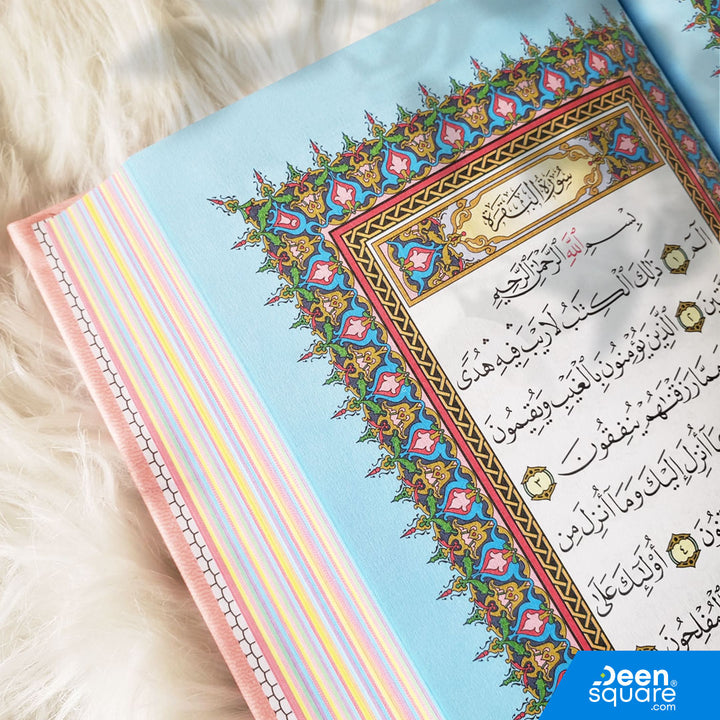 سُورَةُ الْبَقَرَةِ
بِسْمِ اللَّهِ الرَّحْمَٰنِ الرَّحِيمِ
الٓمٓ ١ ذَٰلِكَ ٱلْكِتَٰبُ لَا رَيْبَ فِيهِ هُدًى
٢ ٱلَّذِينَ يُؤْمِنُونَ بِٱلْغَيْبِ وَيُقِيمُونَ
مِمَّا رَزَقْنَٰهُمْ يُنفِقُونَ ٣
أُنزِلَ إِلَيْكَ وَمَآ أُنزِلَ مِن
٤ أُو۟لَٰٓئِكَ عَلَىٰ
ٱلْمُفْلِحُونَ
Deen
square®
.com